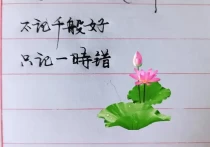 不记千般好
只记一时错